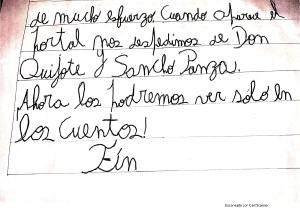 de mucho esfuerzo. Cuando aparece el
portal nos despedimos de Don
Quijote y Sancho Panza.
Ahora los podremos ver sólo en
los Cuentos!
Fin
Escaneado con CamScanner